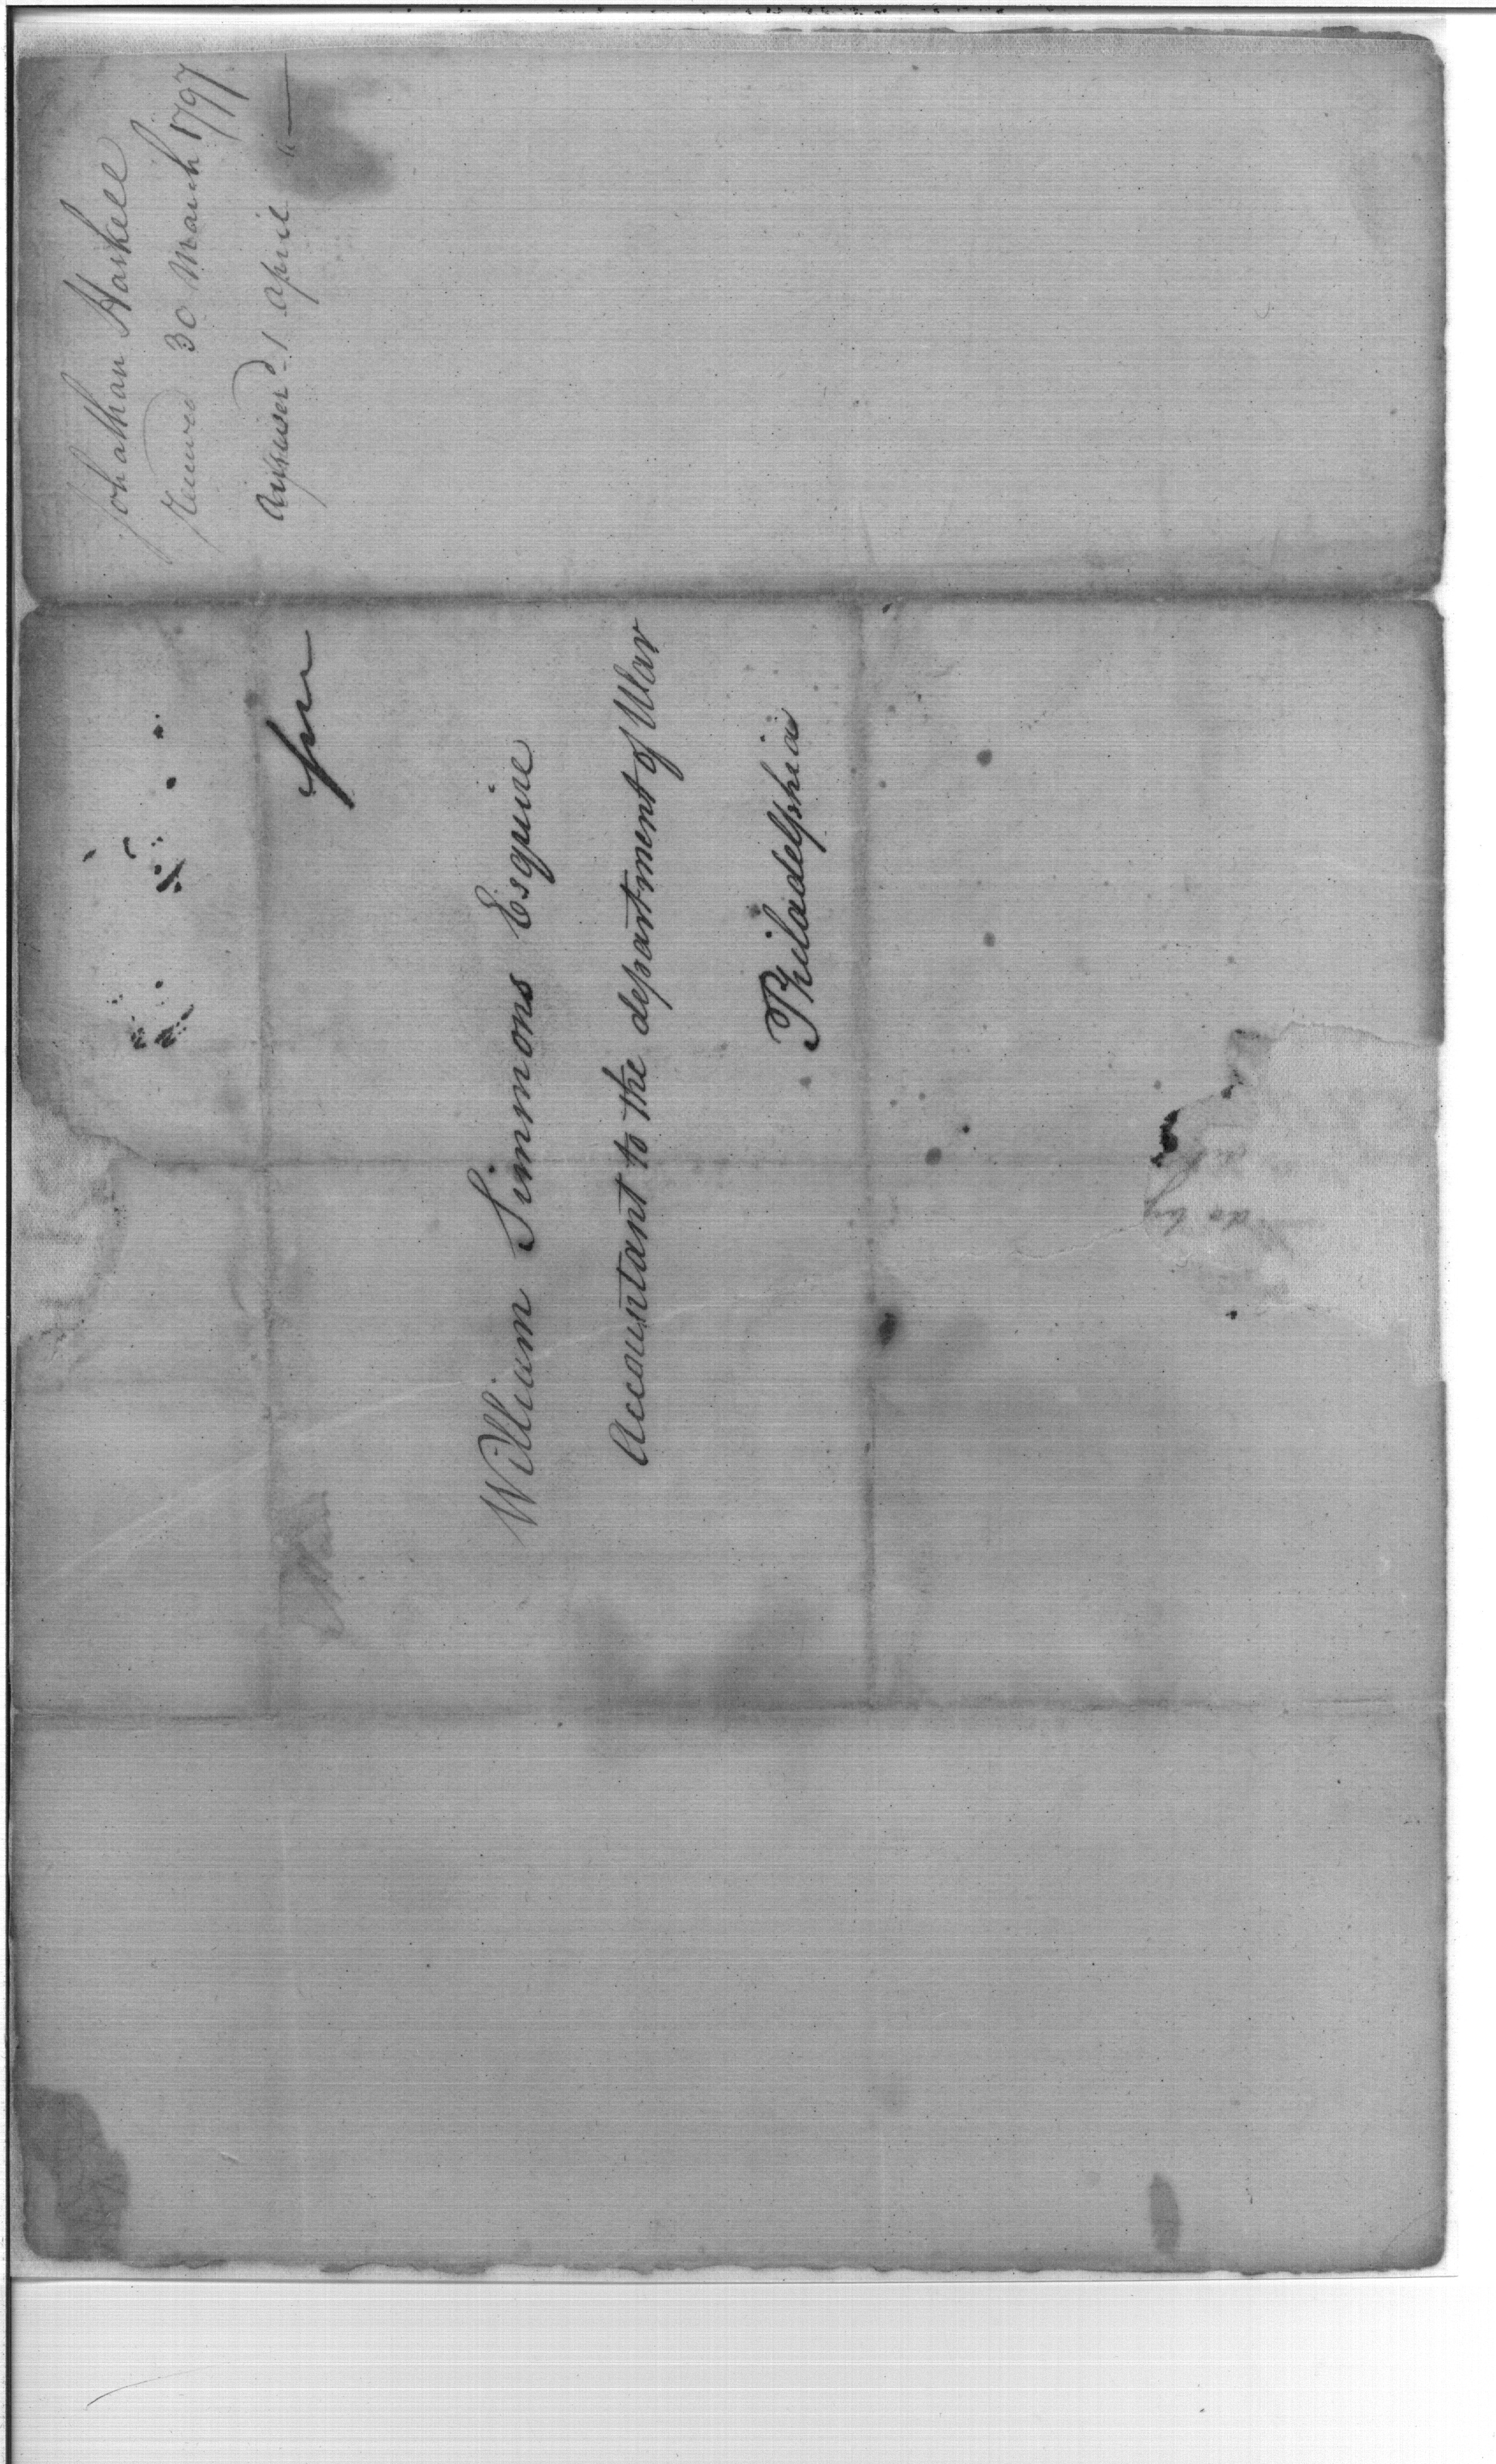 Jonathan Haskell
Received 30 March 1797
Answerd 1 April "
free
William Simmons Esquire
Accountant to the department of War
Philadelphia